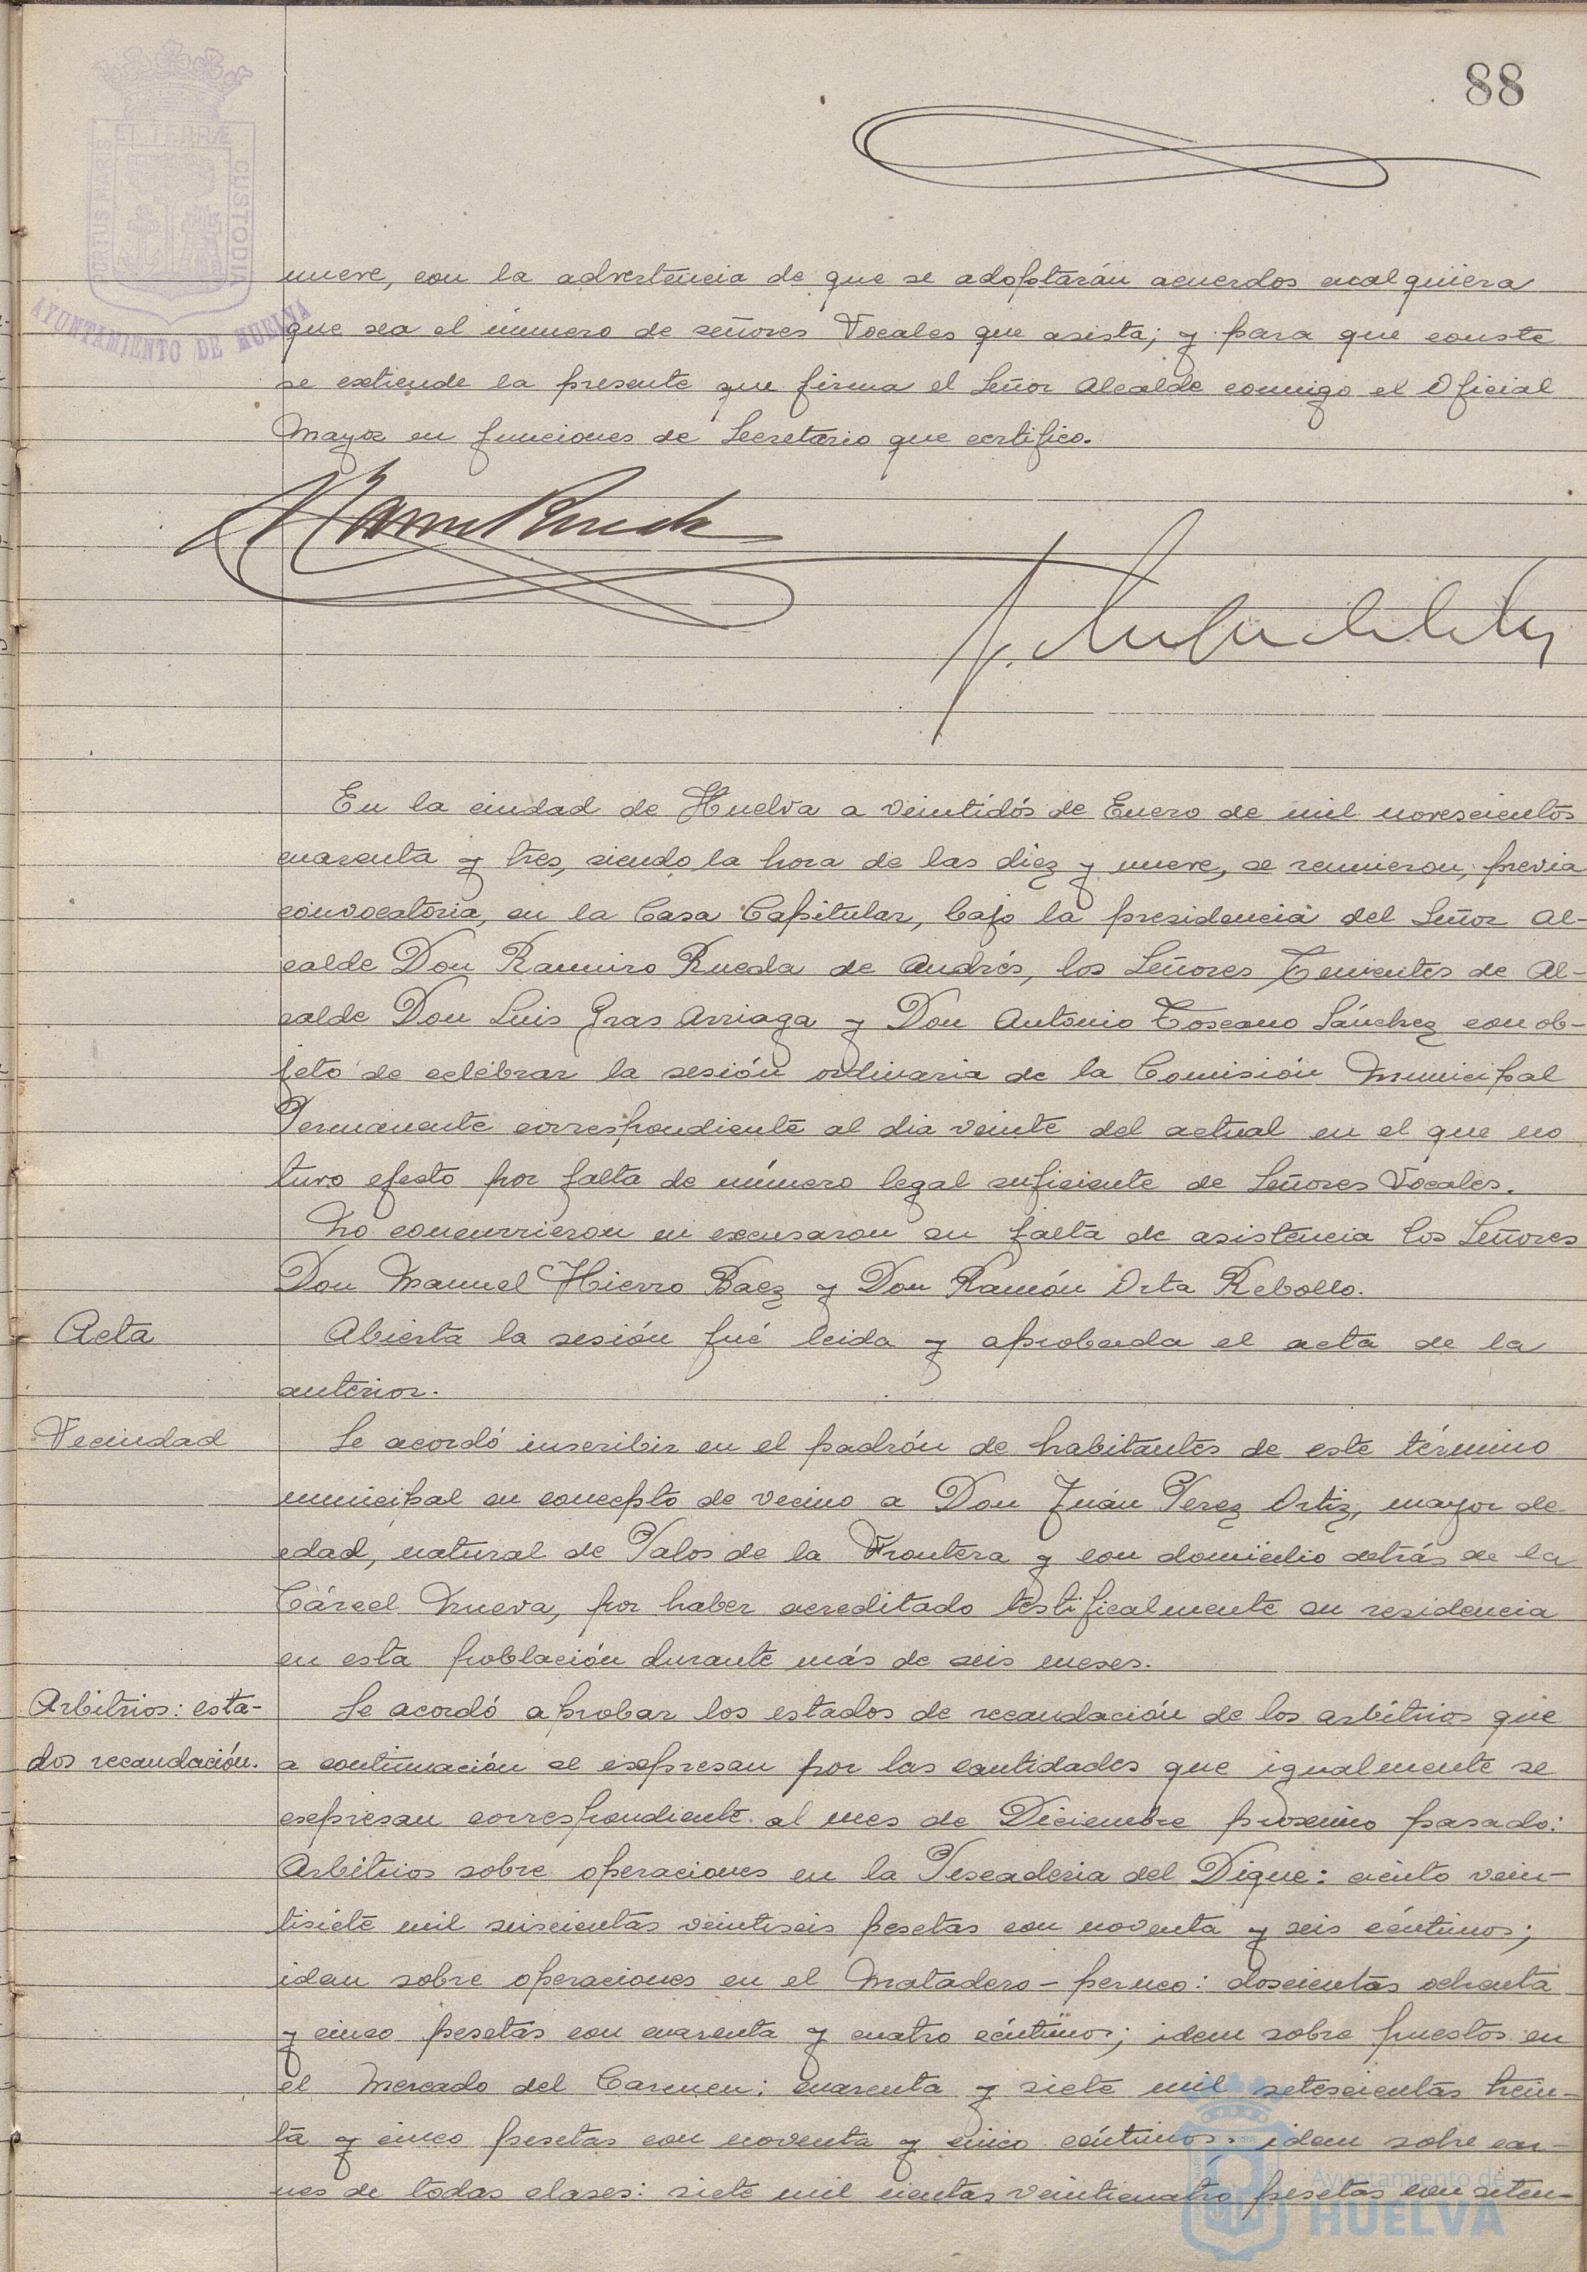 88
PORTUS MARIS
ET TERRÆ
CUSTODIA
AYUNTAMIENTO DE HUELVA
nueve, con la advertencia de que se adoptarán acuerdos cualquiera
que sea el número de señores Vocales que asista; y para que conste
se extiende la presente que firma el Señor Alcalde conmigo el Oficial
Mayor en funciones de Secretario que certifico.
En la ciudad de Huelva a veintidós de Enero de mil novescientos
cuarenta y tres, siendo la hora de las diez y nueve, se reunieron, previa
convocatoria, en la Casa Capitular, bajo la presidencia del Señor Al-
calde Don Ramiro Rueda de Andrés, los Señores Tenientes de Al-
calde Don Luis Gras Arriaga y Don Antonio Toscano Sánchez con ob-
jeto de celebrar la sesión ordinaria de la Comisión Municipal
Permanente correspondiente al dia veinte del actual en el que no
tuvo efecto por falta de número legal suficiente de Señores Vocales.
No concurrieron ni excusaron su falta de asistencia los Señores
Don Manuel Hierro Baez y Don Ramón Orta Rebollo.
Acta
Abierta la sesión fué leida y aprobada el acta de la
anterior.
Vecindad
Se acordó inscribir en el padrón de habitantes de este término
municipal en concepto de vecino a Don Juán Perez Ortiz, mayor de
edad, natural de Palos de la Frontera y con domicilio detrás de la
Cárcel Nueva, por haber acreditado testificalmente su residencia
en esta población durante más de seis meses.
Arbitrios: esta-
dos recaudación.
Se acordó aprobar los estados de recaudación de los arbitrios que
a continuación se expresan por las cantidades que igualmente se
expresan correspondiente al mes de Diciembre proximo pasado:
Arbitrios sobre operaciones en la Pescaderia del Dique: ciento vein-
tisiete mil seiscientas veintiseis pesetas con noventa y seis céntimos;
idem sobre operaciones en el Matadero-perneo: doscientas ochenta
y cinco pesetas con cuarenta y cuatro céntimos; idem sobre puestos en
el Mercado del Carmen: cuarenta y siete mil setescientas trein-
ta y cinco pesetas con noventa y cinco céntimos; idem sobre car-
nes de todas clases: siete mil cientas veinticuatro pesetas con seten-
Ayuntamiento de
HUELVA